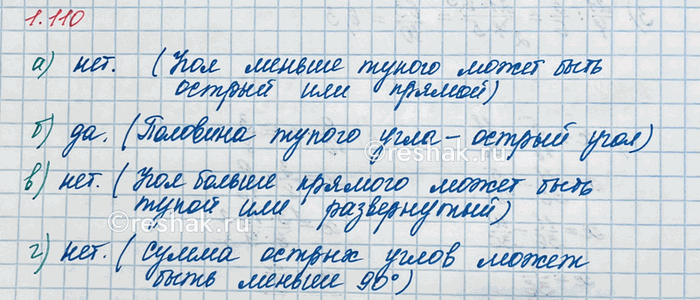 1.110
а) нет. (Угол меньше тупого может быть
острый или прямой)
б) да. (Половина тупого угла – острый угол)
©reshak.ru
в) нет. (Угол больше прямого может быть
тупой или развернутый)
©reshak.ru
г) нет. (сумма острых углов может
быть меньше 90°)